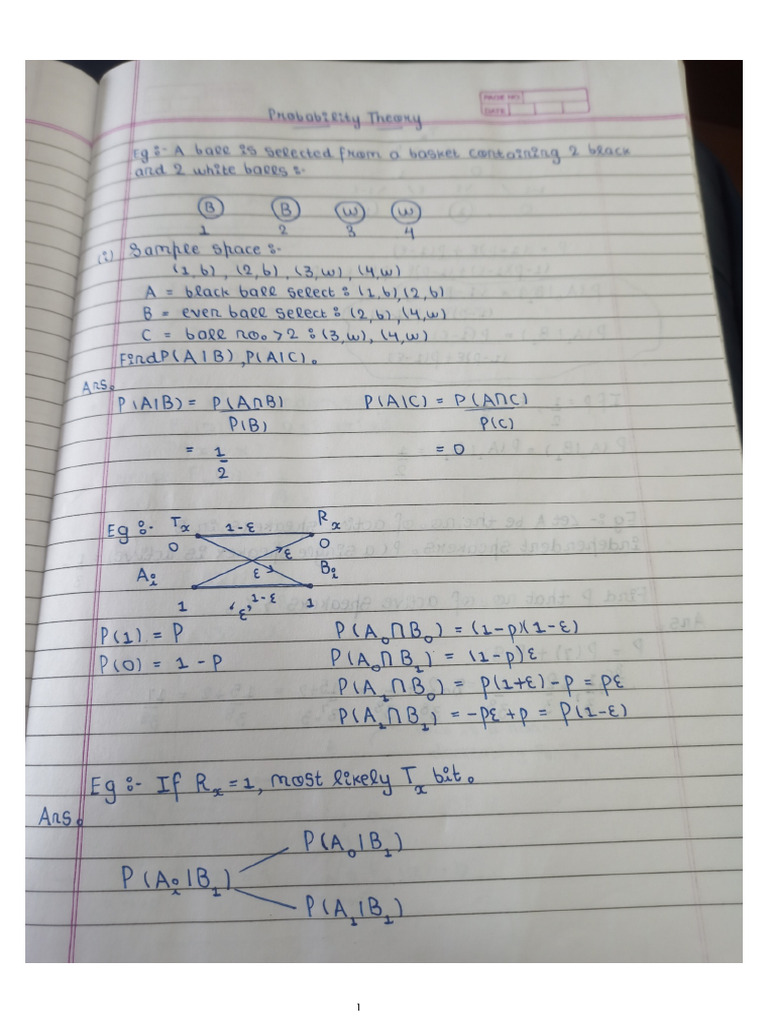 PAGE NO.
DATE
Probability Theory
Eg:- A ball is selected from a basket containing 2 black
and 2 white balls:-
B B W W
1 2 3 4
(i) Sample space:-
(1,b), (2,b), (3,w), (4,w)
A = black ball select : (1,b),(2,b)
B = even ball select : (2,b), (4,w)
C = ball no. > 2 : (3,w), (4,w)
Find P(A|B), P(A|C).
Ans.
P(A|B) = P(A∩B)/P(B) P(A|C) = P(A∩C)/P(C)
= 1/2 = 0
Eg:- Tx 1-ε Rx
0 ε 0
Ai ε Bi
1 'ε' 1-ε 1
P(1) = P P(A₀∩B₀) = (1-p)(1-ε)
P(0) = 1-P P(A₀∩B₁) = (1-p)ε
P(A₁∩B₀) = p(1+ε)-p = pε
P(A₁∩B₁) = -pε+p = P(1-ε)
Eg:- If Rx = 1, most likely Tx bit.
Ans.
P(A₀|B₁)
P(Ai|B₁)
P(A₁|B₁)
1